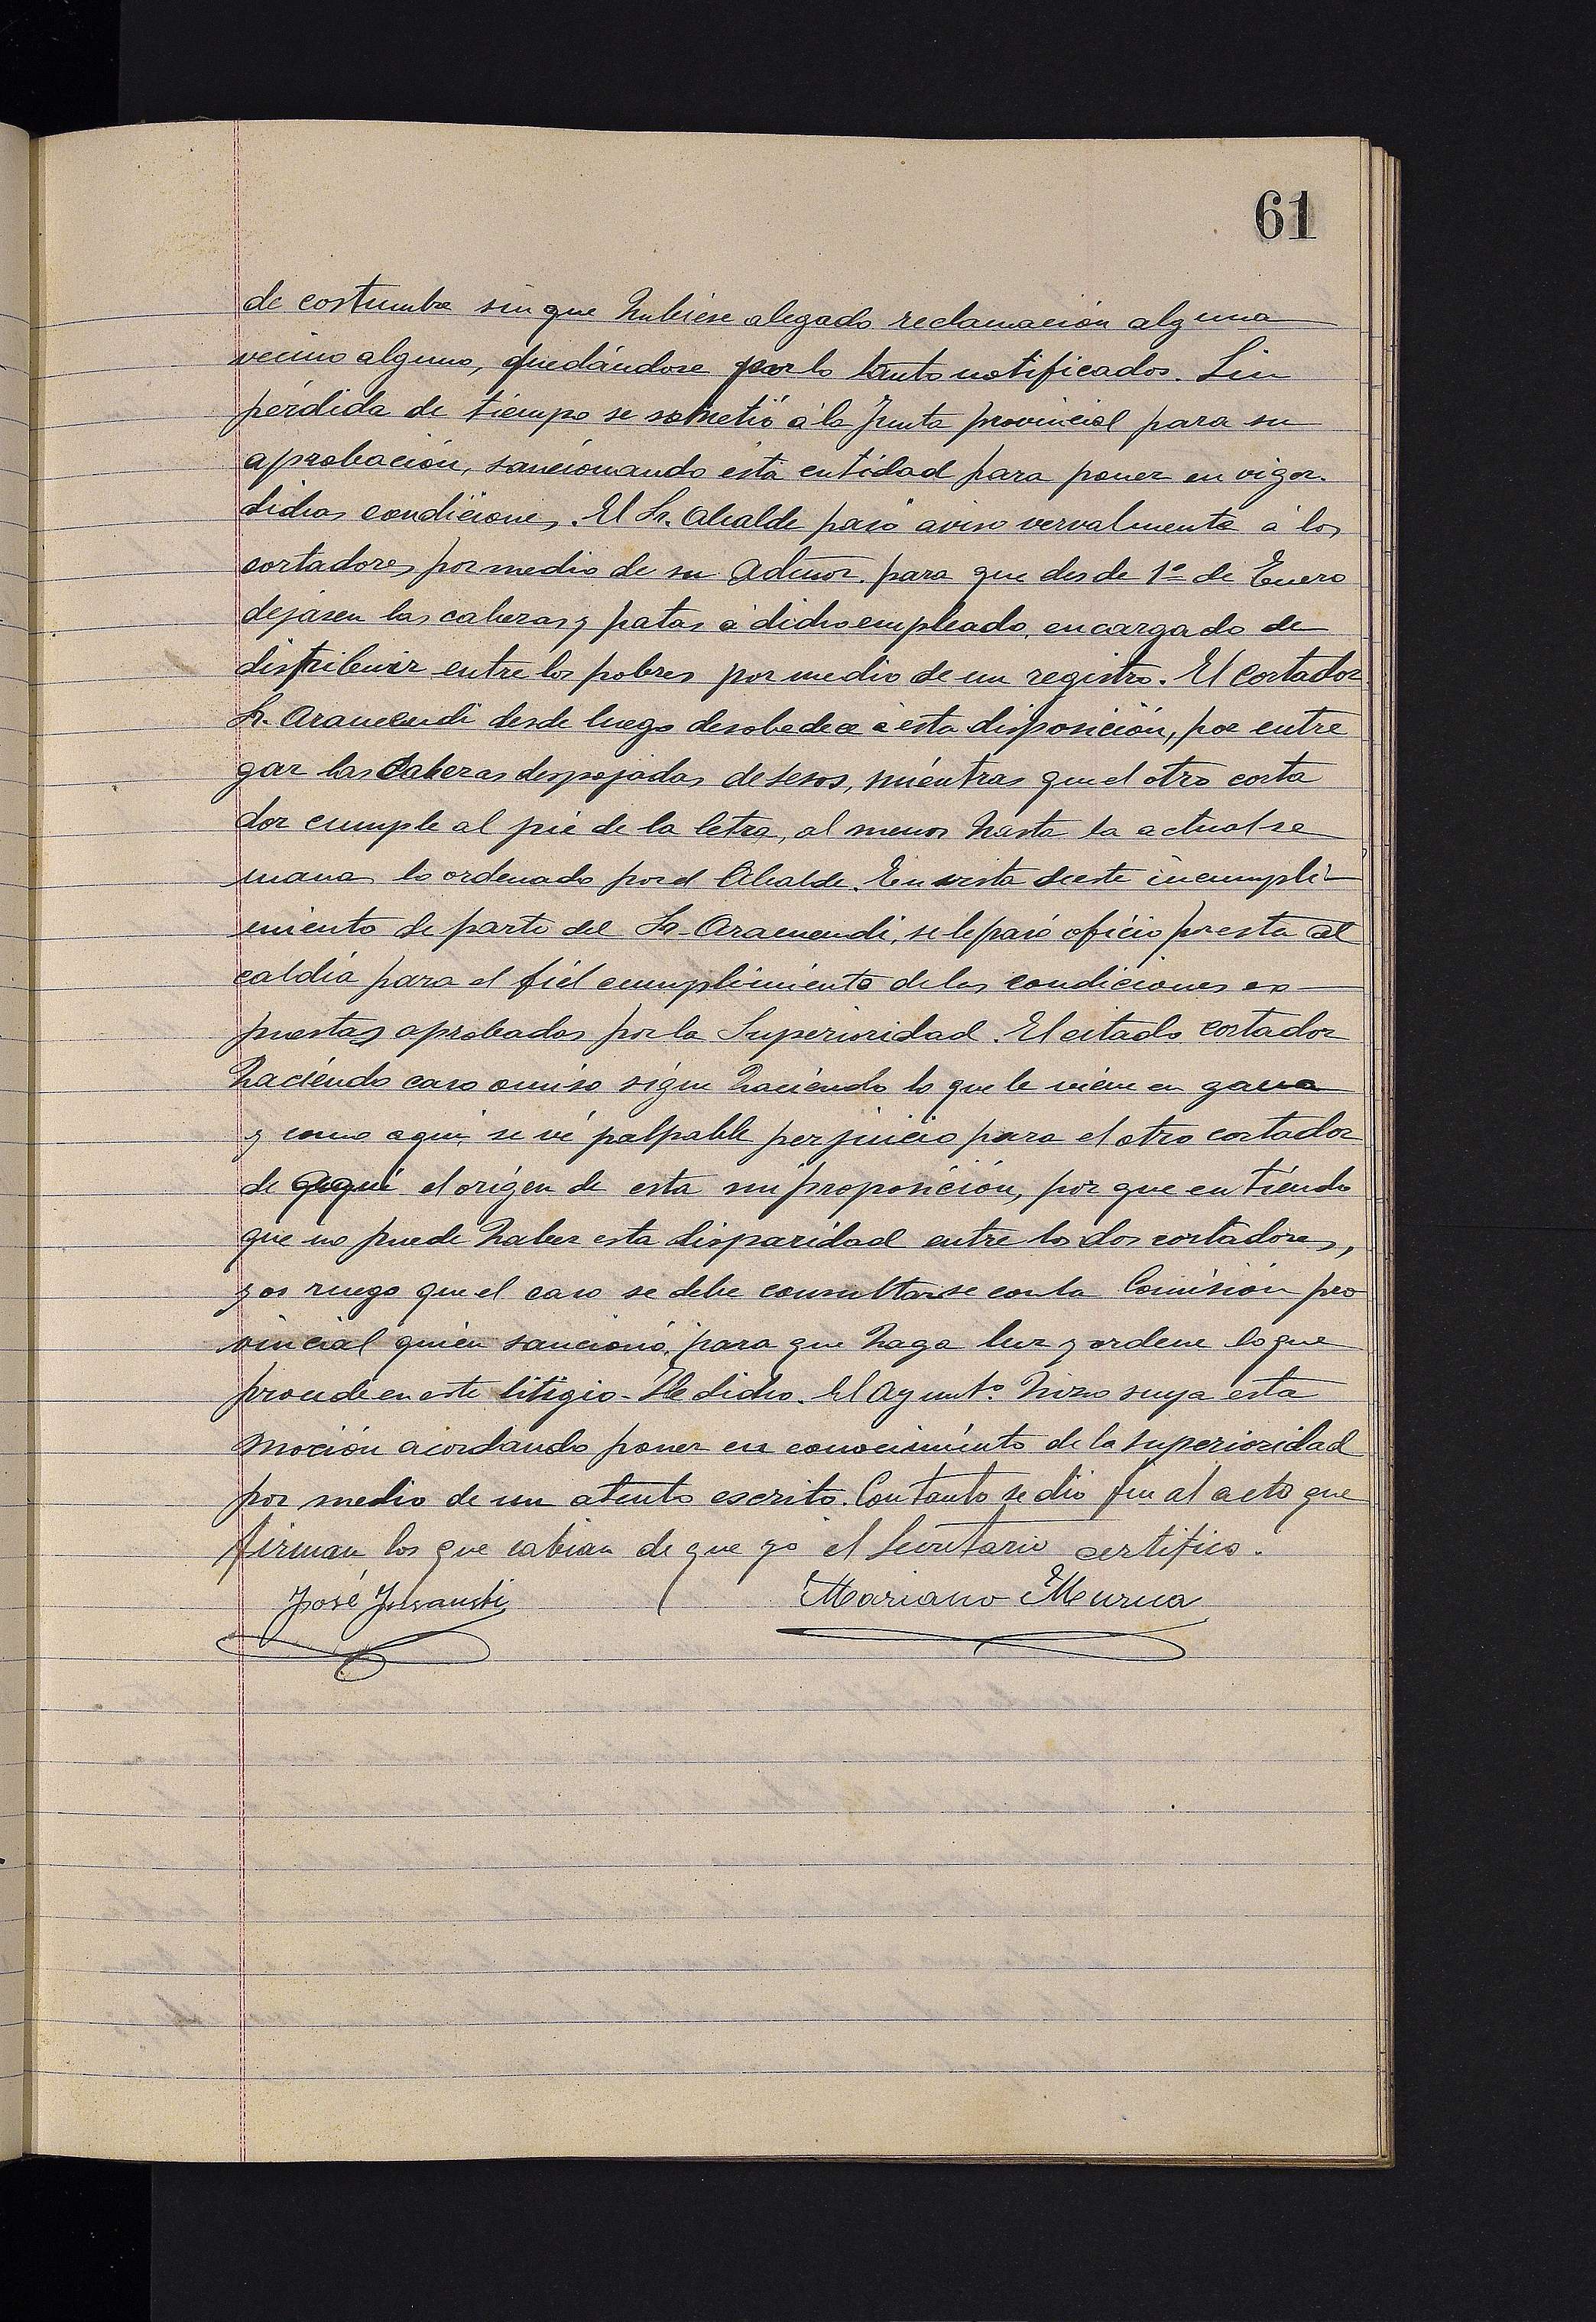 61
de costumbre sin que hubiese alegado reclamación alguna
vecino alguno, quedándose por lo tanto notificados. Sin
pérdida de tiempo se sometió á la Junta provincial para su
aprobación, sancionando esta entidad para poner en vigor
dichas condiciones. El Sr. Alcalde pasó aviso vervalmente á los
cortadores por medio de su Admor. para que desde 1º de Enero
dejasen las cabezas y patas á dicho empleado, encargado de
distribuir entre los pobres por medio de un registro. El Cortador
Sr. Aramendi desde luego desobedece á esta disposición, por entre
gar las Cabezas despojadas de sesos, mientras que el otro corta
dor cumple al pié de la letra, al menos hasta la actual se
mana lo ordenado por el Alcalde. En vista de este incumpli-
miento de parte del Sr. Aramendi, se le pasó oficio por esta al
caldía para el fiél cumplimiento de las condiciones ex-
puestas aprobadas por la Superioridad. El citado Cortador
haciendo caso omiso sigue haciendo lo que le viene en gana
y como aqui se vé palpable perjuicio para el otro cortador
de aqui el origen de esta mi proposición, por que entiendo
que no puede haber esta disparidad entre los dos cortadores,
y os ruego que el caso se debe consultarse con la Comisión pro
vincial quién sancionó, para que haga luz y ordene lo que
procede en este litigio - He dicho. El Ayuntº hizo suya esta
moción acordando poner en conocimiento de la superioridad
por medio de un atento escrito. Con tanto se dió fin al acto que
firman los que sabian de que yo el Secretario certifico.
José Mariano Murua